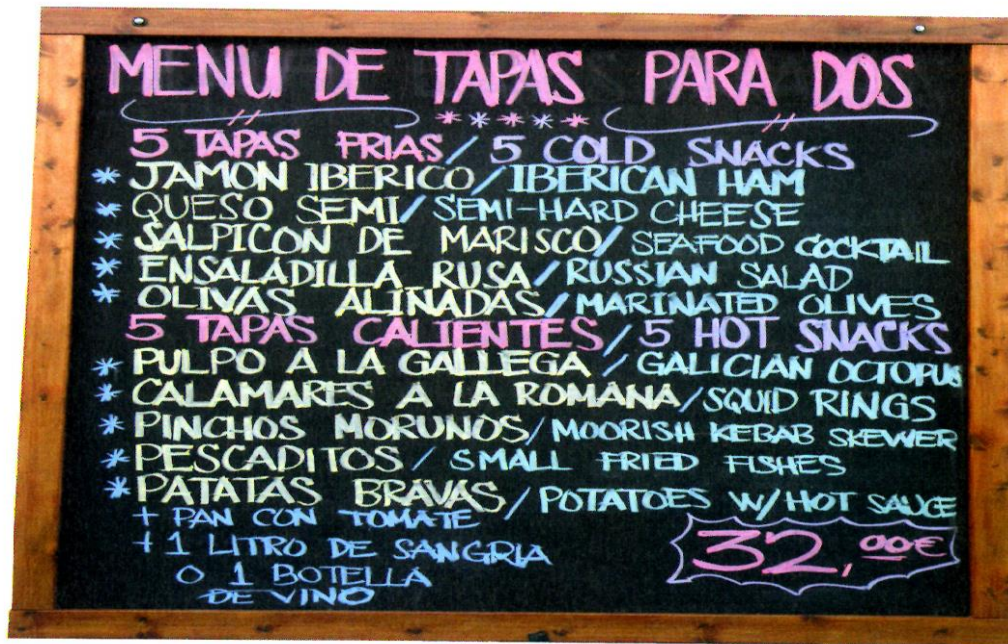 MENU DE TAPAS PARA DOS
5 TAPAS FRIAS / 5 COLD SNACKS
* JAMON IBERICO / IBERICAN HAM
* QUESO SEMI / SEMI-HARD CHEESE
* SALPICON DE MARISCO / SEAFOOD COCKTAIL
* ENSALADILLA RUSA / RUSSIAN SALAD
* OLIVAS ALIÑADAS / MARINATED OLIVES
5 TAPAS CALIENTES / 5 HOT SNACKS
* PULPO A LA GALLEGA / GALICIAN OCTOPUS
* CALAMARES A LA ROMANA / SQUID RINGS
* PINCHOS MORUNOS / MOORISH KEBAB SKEWER
* PESCADITOS / SMALL FRIED FISHES
* PATATAS BRAVAS / POTATOES W/HOT SAUCE
+ PAN CON TOMATE
+ 1 LITRO DE SANGRIA
O 1 BOTELLA
DE VINO
32,00€